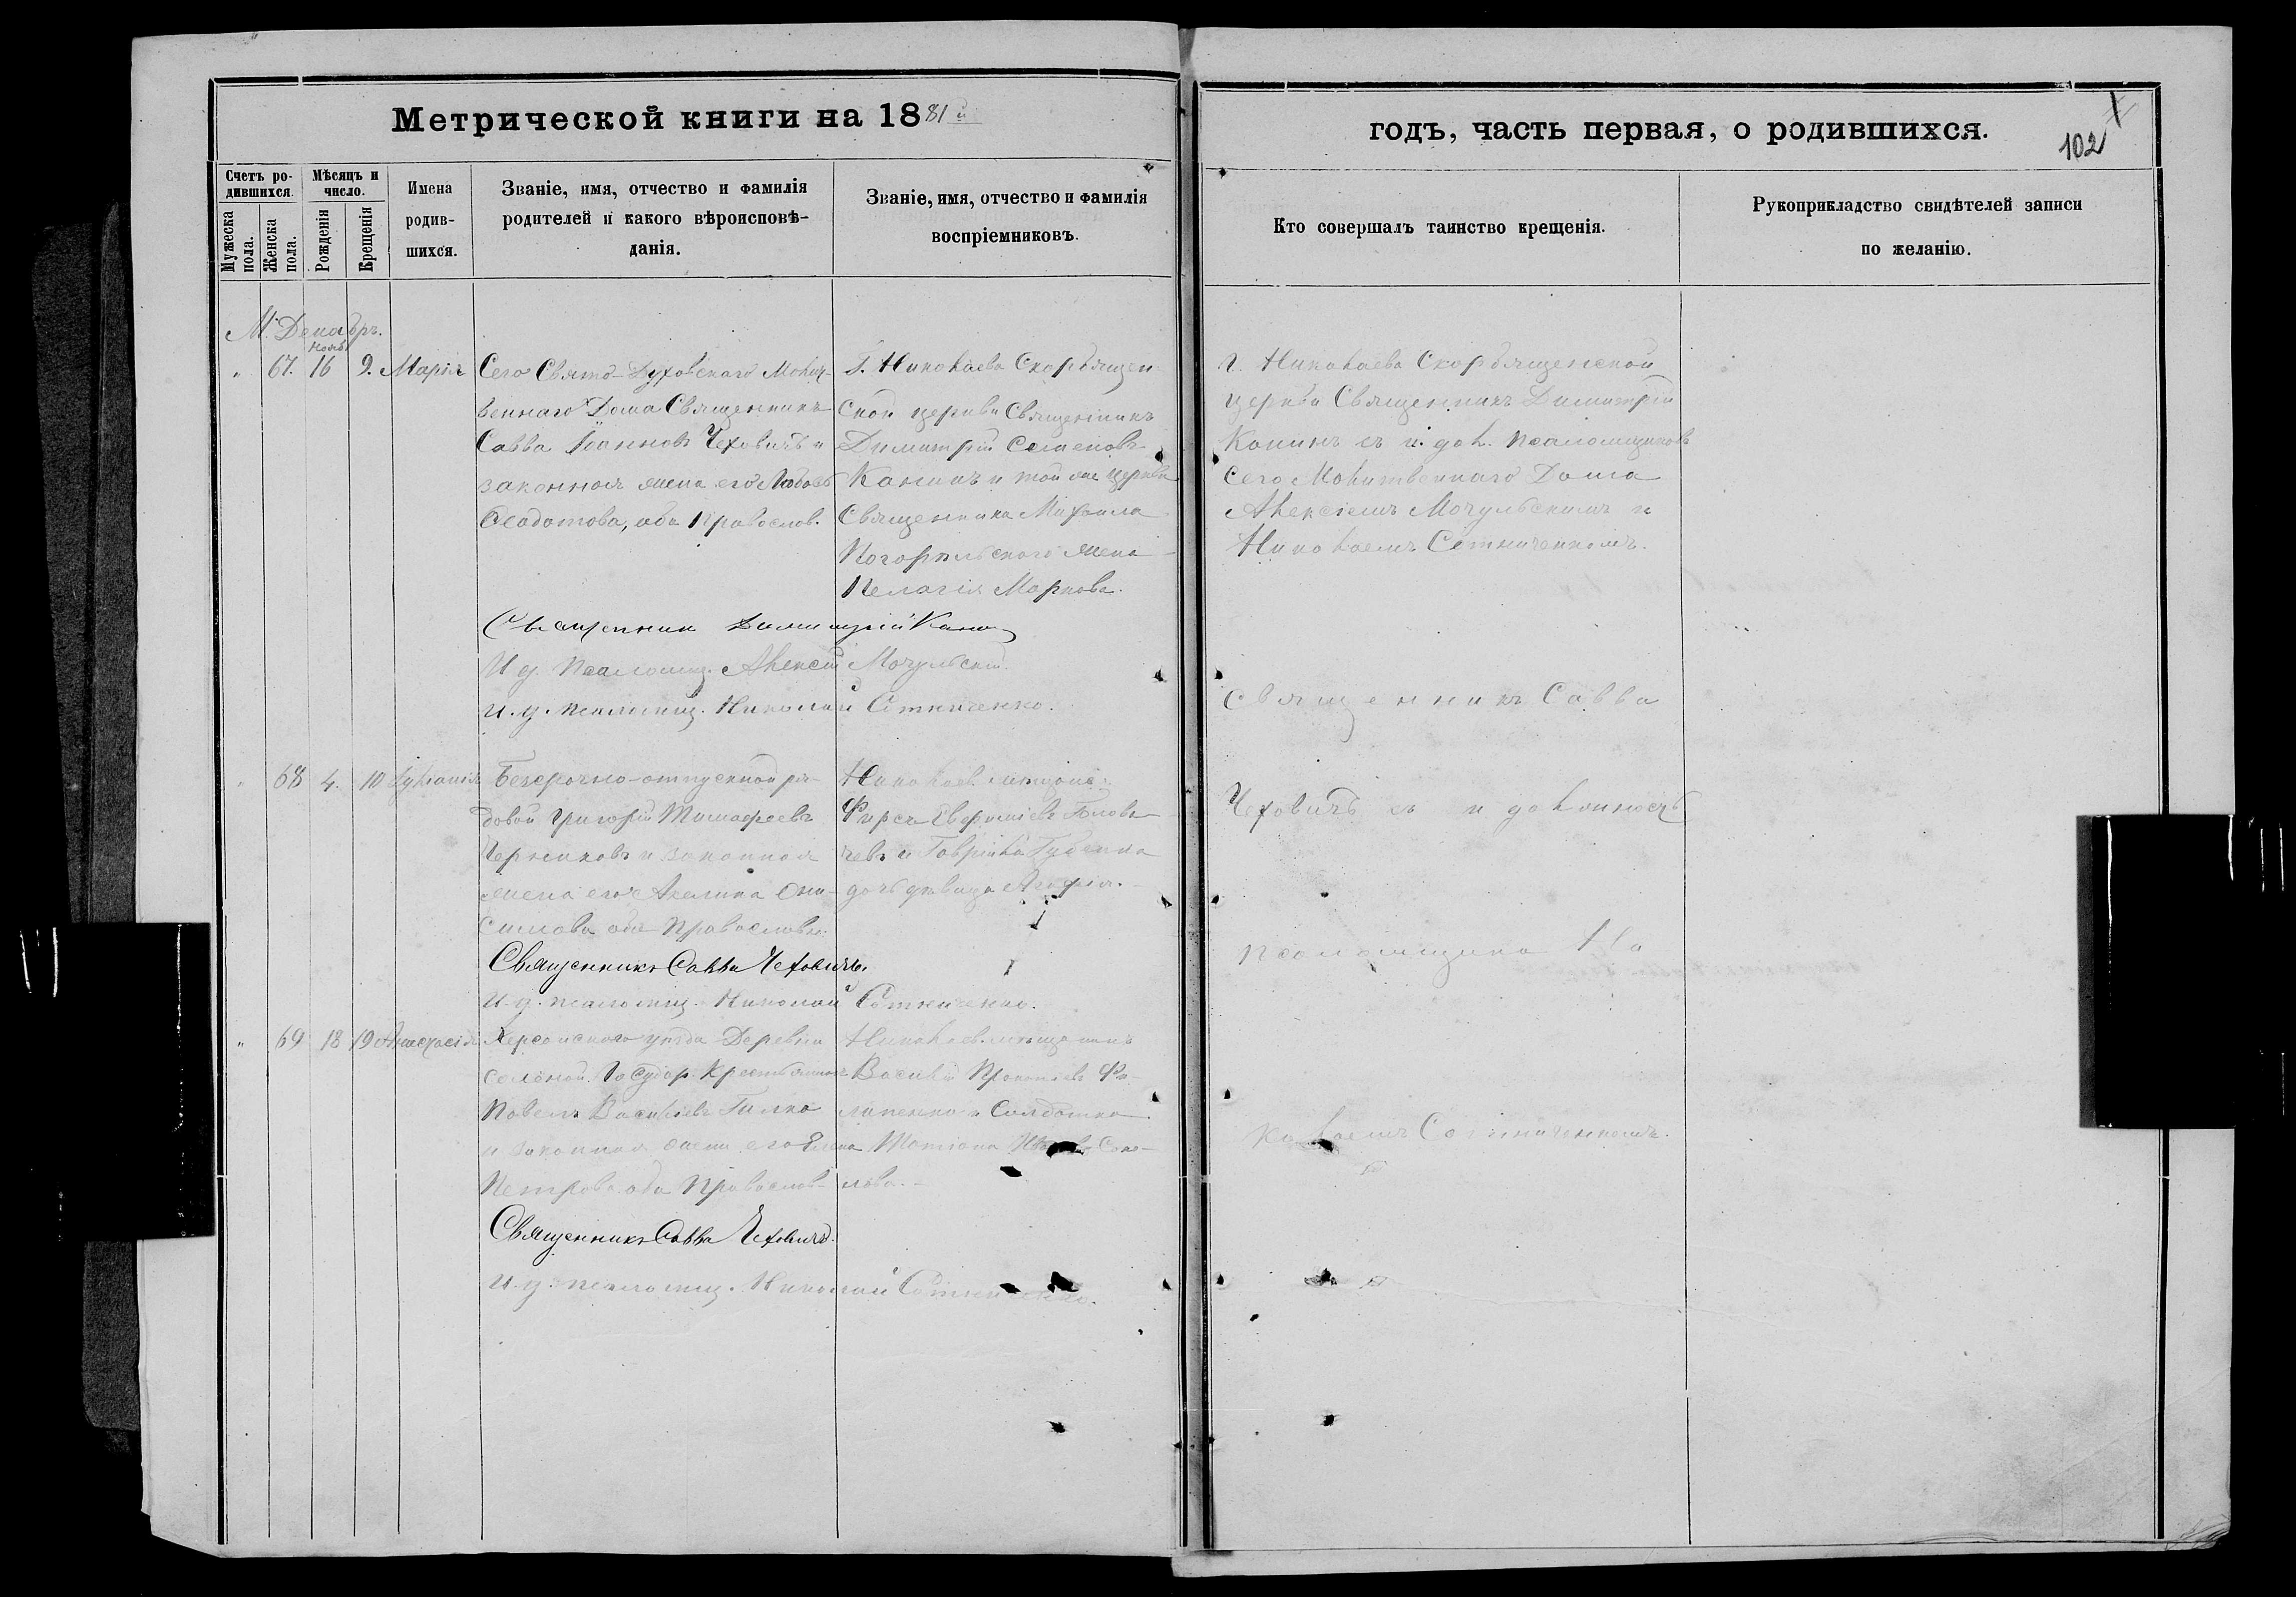 Метрической книги на 1881й
годъ, часть первая, о родившихся.
102
Счетъ ро-
дившихся.
Мужеска
пола.
Женска
пола.
Мѣсяцъ и
число.
Рожденія
Крещенія
Имена
родив-
шихся.
Званіе, имя, отчество и фамилія
родителей и какого вѣроисповѣ-
данія.
Званіе, имя, отчество и фамилія
воспріемниковъ.
Кто совершалъ таинство крещенія.
Рукоприкладство свидѣтелей записи
по желанію.
М. Декабрь.
" 67. Нояб. 16 9. Марія
Сего Свято-Духовскаго Молит-
веннаго Дома Священникъ
Савва Іоанновъ Чеховичъ и
законная жена его Любовь
Феодотова, оба Православ.
Г. Николаева Скорбящен-
ской церкви Священникъ
Димитрій Семеновъ
Канинъ и той же церкви
Священника Михаила
Погорѣльскаго жена
Пелагія Маркова.
г. Николаева Скорбященской
церкви Священникъ Димитрій
Канинъ съ и. дол. псаломщиковъ
сего Молитвеннаго Дома
Алексіемъ Мочульскимъ и
Николаемъ Сотниченкомъ.
Священник Димитрій Канин
И д. Псаломщ. Алексій Мочульскій
И. д. псаломщ. Николай Сотниченко.
" 68 4. 10 Іуліанія
Безсрочно-отпускной ря-
довой Григорій Тимофеевъ
Черниковъ и законная
жена его Акелина Они-
симова оба Православн.
Николаев. мѣщане:
Фирсъ Евфиміевъ Голов-
чевъ и Гавріила Губенка
дочь дѣвица Агафія.
Священникъ Савва Чеховичъ.
И. д. псаломщ. Николай Сотниченко.
" 69 18 19 Анастасія
Херсонскаго уѣзда Деревни
Соленой Государ. Крестьянинъ
Павелъ Василіевъ Галка
и законная жена его Елена
Петрова оба Православ-
Николаев. мѣщанинъ
Василій Прокопіевъ Фи-
липенко и Солдатка
Татіана
лова.
Священникъ Савва Чеховичъ.
И. д. псаломщ. Николай Сотниченко.
Священникъ Савва
Чеховичъ съ и должность
псаломщика Ни
колаемъ Сотниченкомъ.